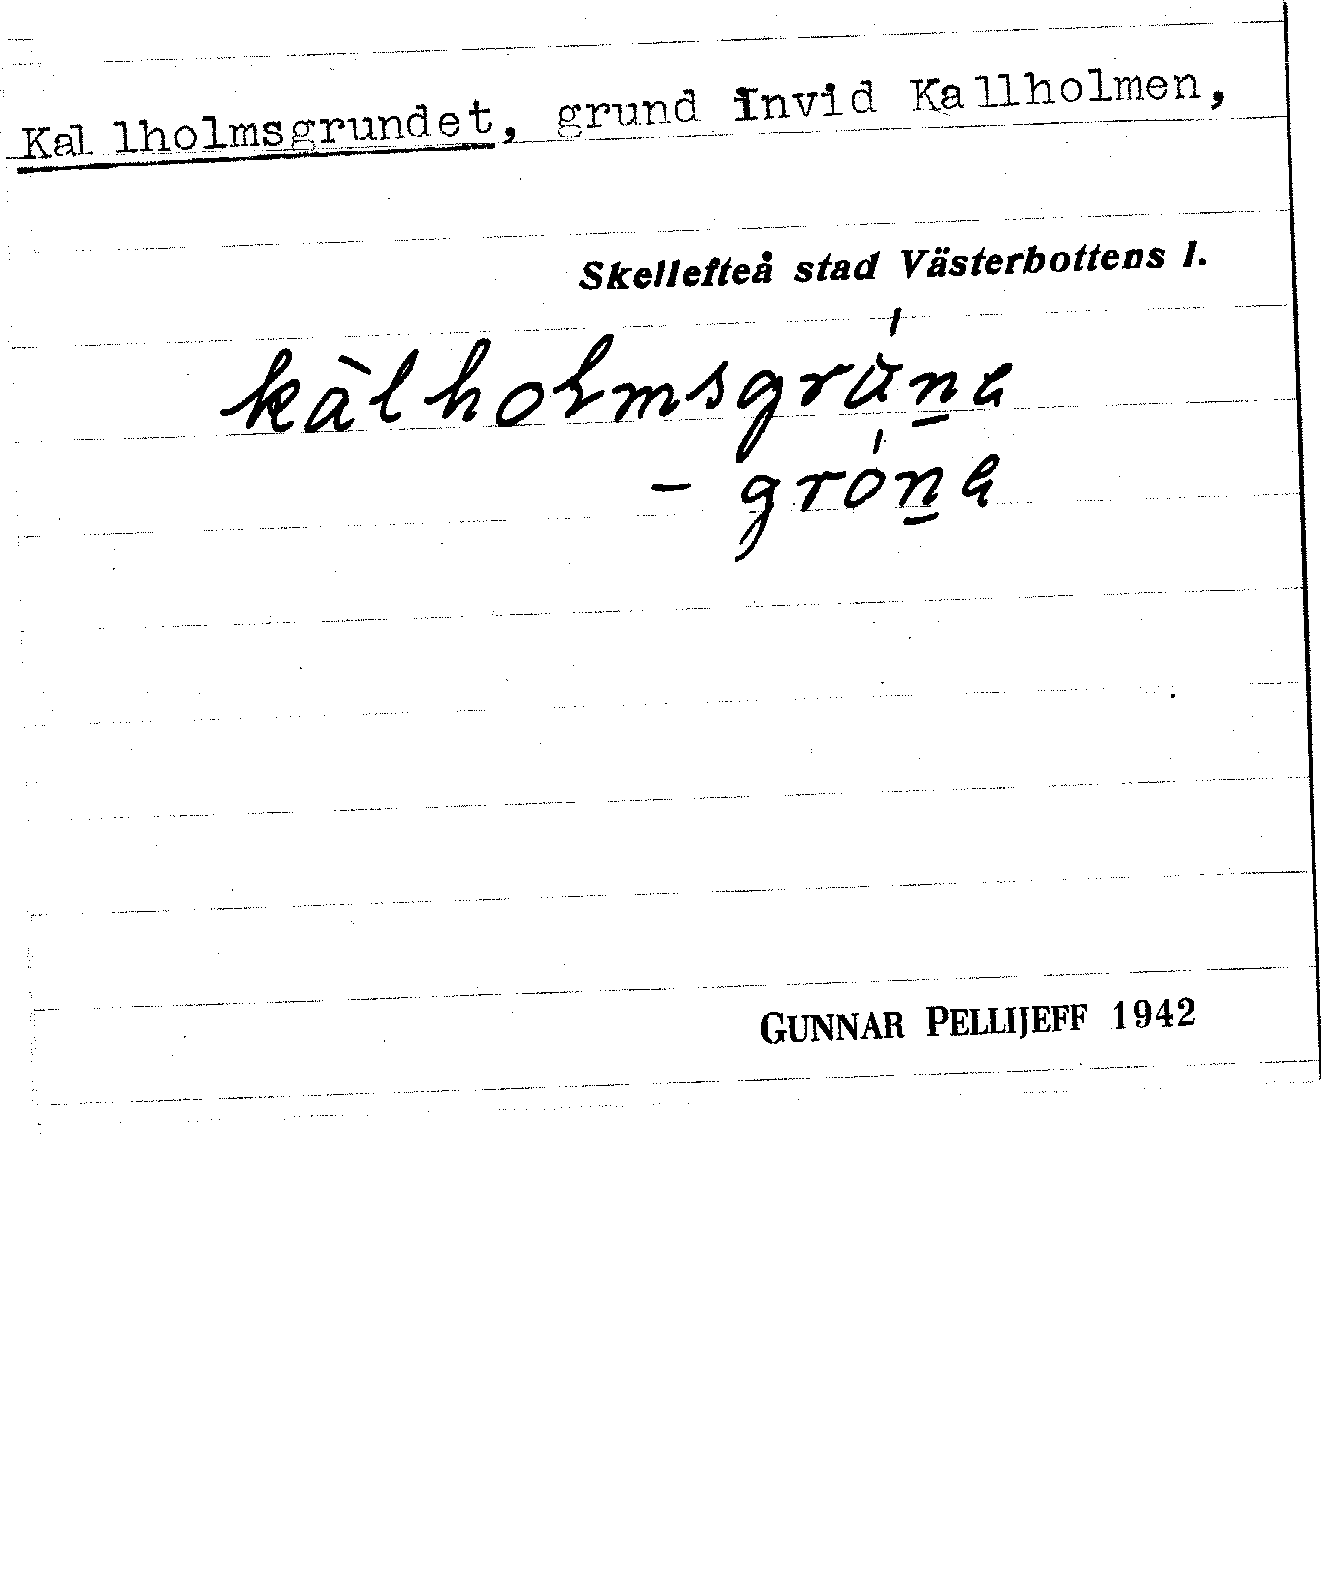 Kallholmsgrundet, grund invid Kallholmen,
Skellefteå stad Västerbottens l.
kàlholmsgrúna
- gróna
GUNNAR PELLIJEFF 1942